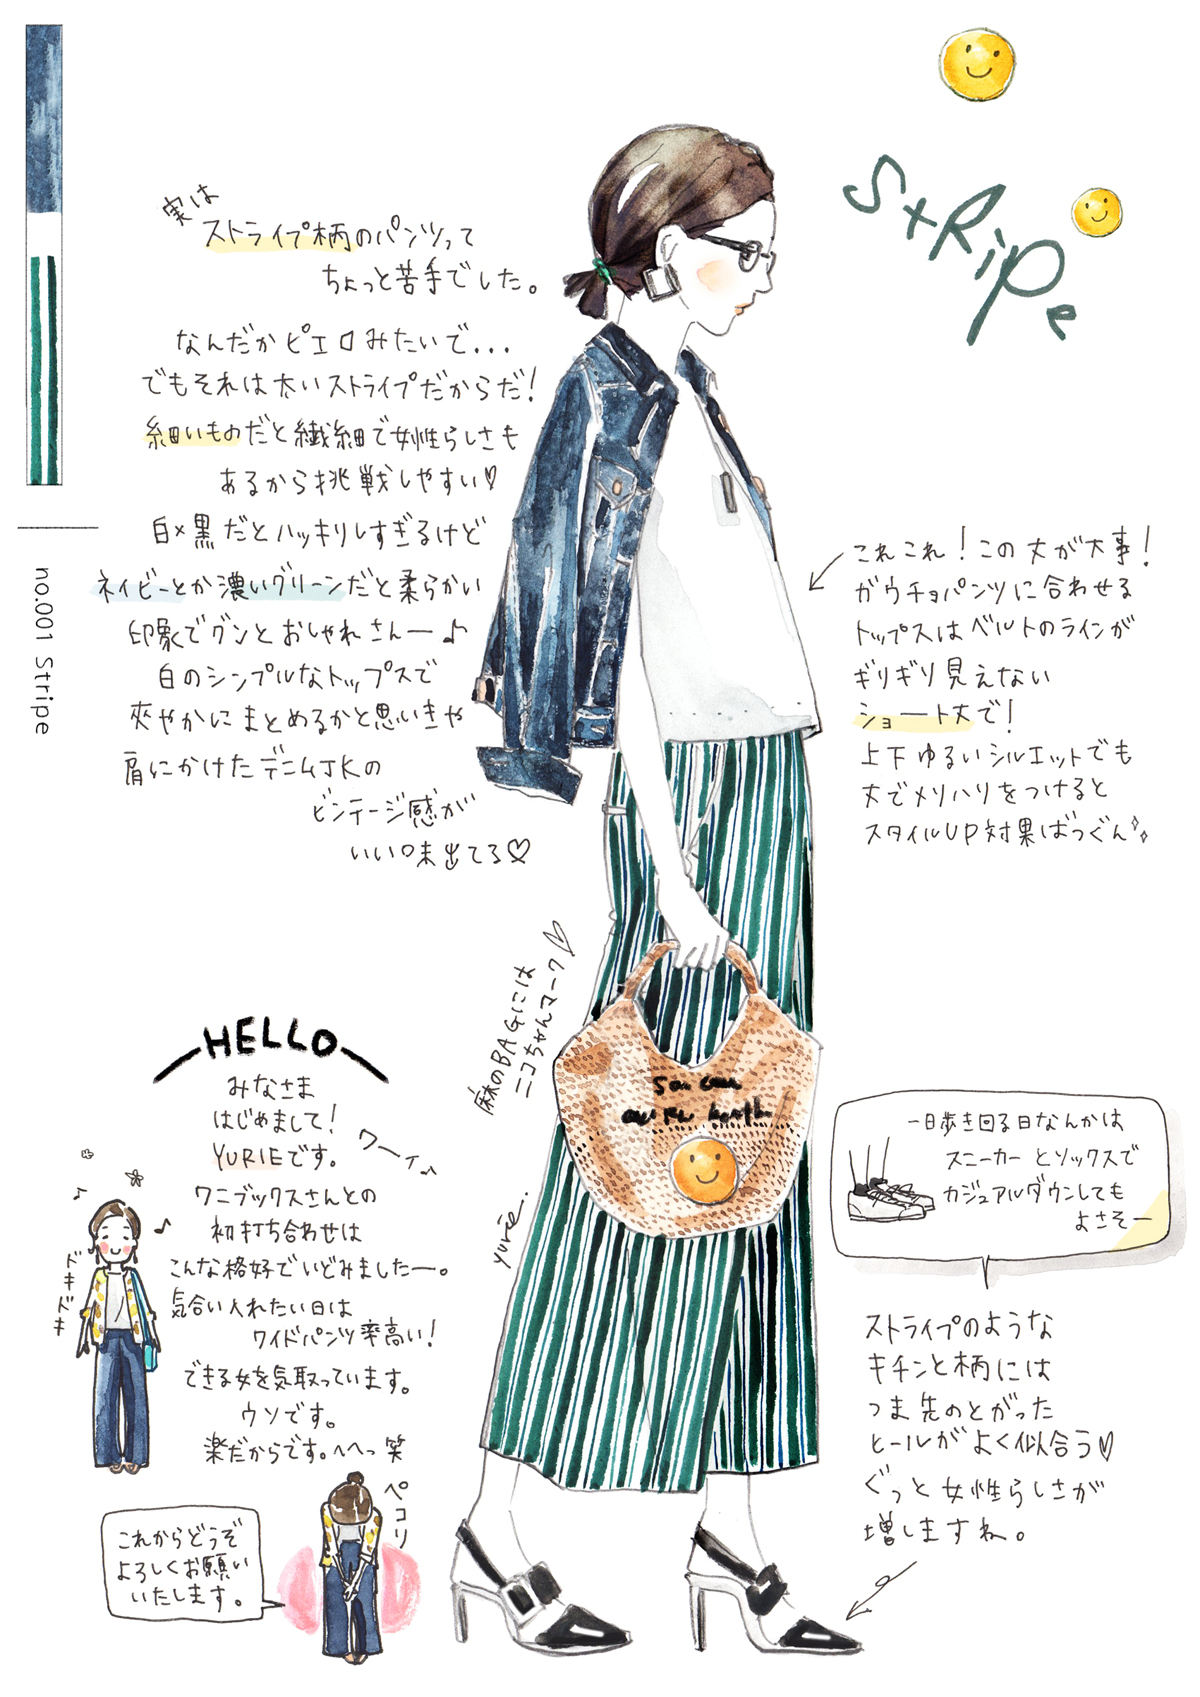 StRiPe
no.001 Stripe
実は
ストライプ柄のパンツって
ちょっと苦手でした。
なんだかピエロみたいで...
でもそれは太いストライプだからだ!
細いものだと繊細で女性らしさも
あるから挑戦しやすい♡
白×黒だとハッキリしすぎるけど
ネイビーとか濃いグリーンだと柔らかい
印象でグンとおしゃれさんー♪
白のシンプルなトップスで
爽やかにまとめるかと思いきや
肩にかけたデニムJKの
ビンテージ感が
いい味出てる♡
これこれ!この丈が大事!
ガウチョパンツに合わせる
トップスはベルトのラインが
ギリギリ見えない
ショート丈で!
上下ゆるいシルエットでも
丈でメリハリをつけると
スタイルUP対果ばつぐん
麻のBAGには
ニコちゃんマーク♡
yurie.
HELLO
みなさま
はじめまして!
YURIEです。
ワーイ♪
ワニブックスさんとの
初打ち合わせは
こんな格好でいどみましたー。
気合い入れたい日は
ワイドパンツ率高い!
できる女を気取っています。
ウソです。
楽だからです。へへっ笑
ドキドキ
ペコリ
これからどうぞ
よろしくお願い
いたします。
一日歩き回る日なんかは
スニーカーとソックスで
カジュアルダウンしても
よさそー
ストライプのような
キチンと柄には
つま先のとがった
ヒールがよく似合う♡
ぐっと女性らしさが
増しますね。